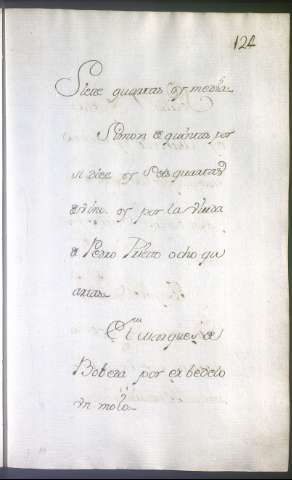 124
Siete quartas y media
Simon de quintas por
si diez y seis quartas
de vino y por la viuda
de Pedro Prieto ocho qu
artas
El Marques de
Bobeda por exbedelo
un moio